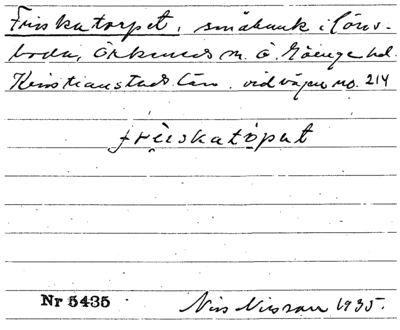 Friskatorpet, småbruk i Löns-
boda, Örkeneds sn. Ö. Göinge hd.
Kristianstads län. vid vägen no. 214
friiskatȯpet
Nr 5435
Nils Nilsson 1935.